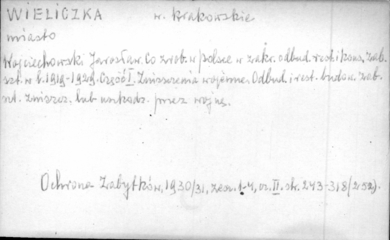 WIELICZKA w. Krakowskie
miasto
Wojciechowski Jarosław. Co zrob. w Polsce w zakr. odbud. rest. i kons. zab.
szt. w l. 1919-1929. Część I. Zniszczenia wojenne. Odbud. i rest. budow. zab.
zniszcz. lub uszkodz. przez wojnę.
Ochrona Zabytków, 1930/31, zesz. 1-4, cz. II. str. 243-318